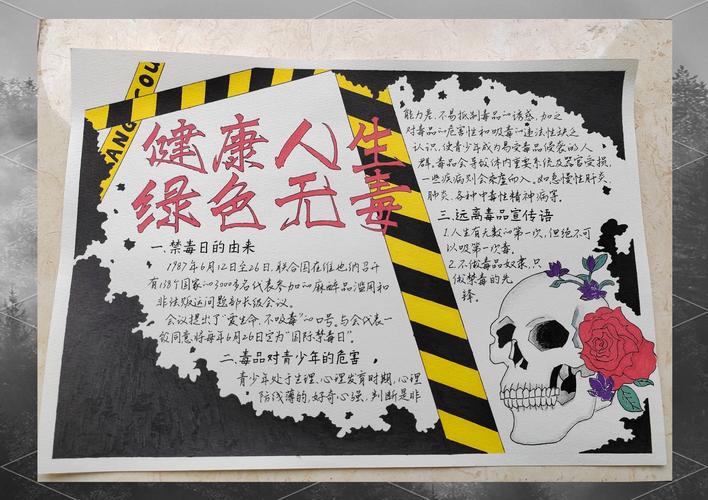 ANG
COU
健康人生
绿色无毒
一.禁毒日的由来
1987年6月12日至26日,联合国在维也纳召开
有138个国家的3000多名代表参加的麻醉品滥用和
非法贩运问题部长级会议。
会议提出了“爱生命,不吸毒”的口号,与会代表一
致同意将每年6月26日定为“国际禁毒日”。
二.毒品对青少年的危害,
青少年处于生理、心理发育时期,心理
防线薄的,好奇心强,判断是非
能力差,不易抵制毒品的诱惑,加之
对毒品的危害性和吸毒的违法性缺乏
认识,使青少年成为易受毒品侵袭的人
群。毒品会导致体内重要系统及器官受损,
一些疾病则会乘虚而入,如急慢性肝炎、
肺炎、各种中毒性精神病等。
三.远离毒品宣传语
1.人生有无数的第一次,但绝不可
以吸第一次毒。
2.不做毒品奴隶,只
做禁毒的先
锋。